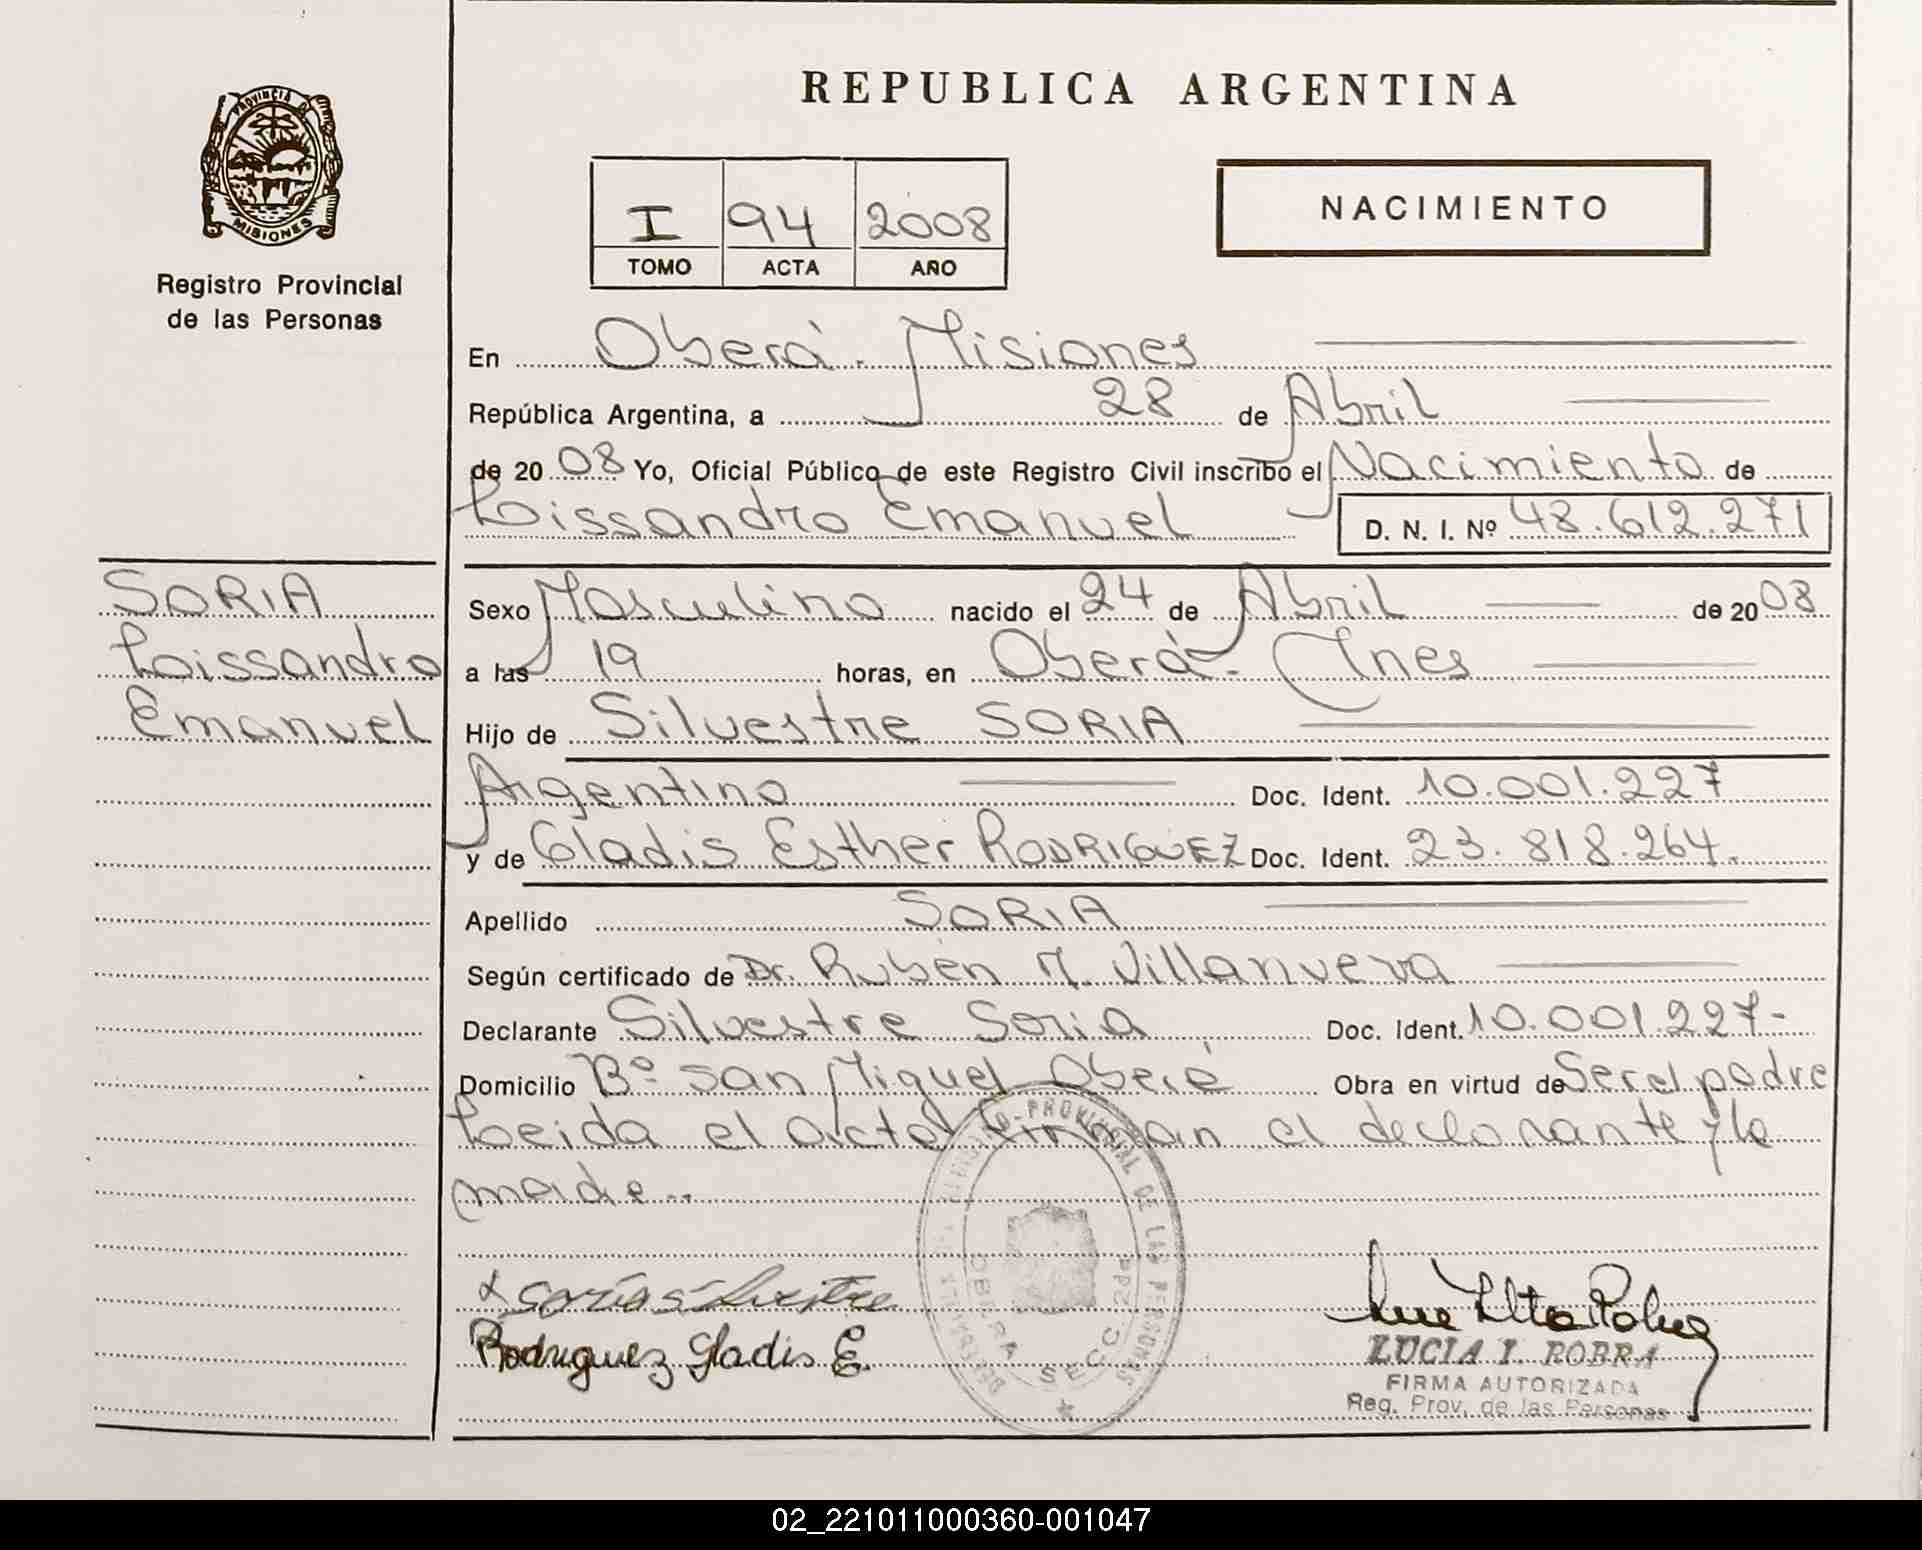 REPUBLICA ARGENTINA
PROVINCIA D
MISIONES
Registro Provincial
de las Personas
I 94 2008
TOMO ACTA AÑO
NACIMIENTO
En Oberá - Misiones
República Argentina, a 28 de Abril
de 2008 Yo, Oficial Público de este Registro Civil inscribo el Nacimiento de
Lissandro Emanuel D. N. I. Nº 48.612.271
SORIA
Lissandro
Emanuel
Sexo Masculino nacido el 24 de Abril de 2008
a las 19 horas, en Oberá - Mnes
Hijo de Silvestre SORIA
Argentino Doc. Ident. 10.001.227
y de Gladis Esther RODRIGUEZ Doc. Ident. 23.818.264.
Apellido SORIA
Según certificado de Dr. Rubén M. Villanueva
Declarante Silvestre Soria Doc. Ident. 10.001.227-
Domicilio Bº San Miguel Oberá Obra en virtud de Ser el padre
Leida el acta firman el declarante y la
madre..
Soria Silvestre
Rodriguez Gladis E.
REGISTRO PROVINCIAL DE LAS PERSONAS
OBERA SECC. 2da
LUCIA I. ROBRA
FIRMA AUTORIZADA
Reg. Prov. de las Personas
02_221011000360-001047